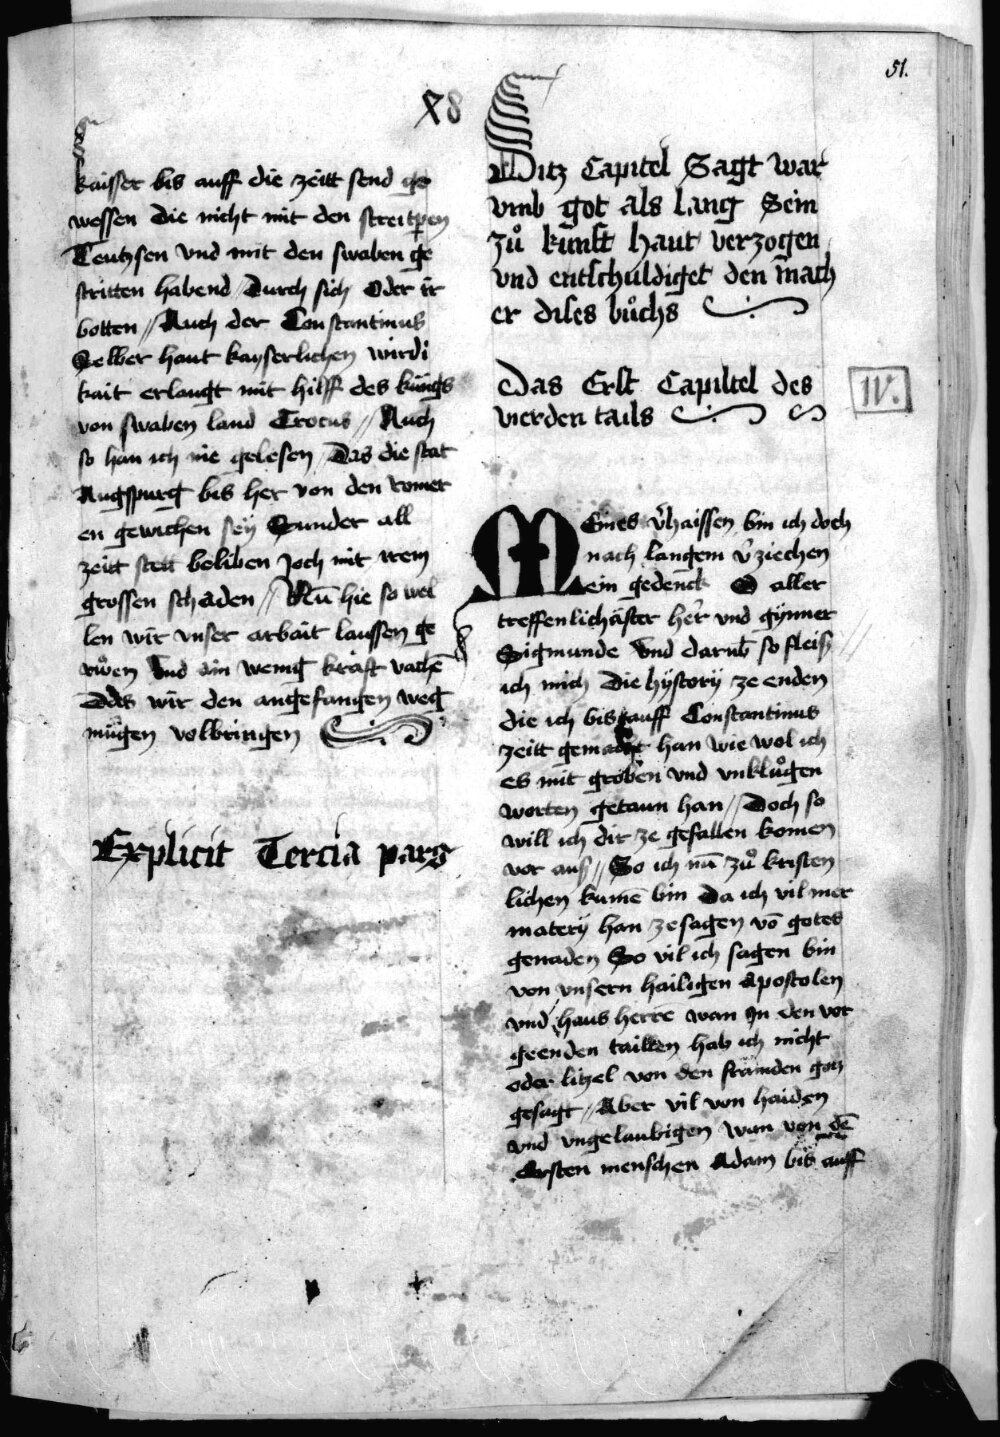 51.
x8
kaisser bis auff die zeitt send ge
wessen die nicht mit den streitperen
Teutzsen vnd mit den swaben ge
stritten habend / Durch sich oder ir
botten // Auch der Constantinus
Selber haut kayserlichen wirdi
kait erlangt mit hilff des kungs
von swaben land Crocus // Auch
so han ich nie gelesen / Das die stat
Augspurg bis her von den romer
en gewichen sey Sunder all
zeitt stett beliben Joch mit irem
grossen schaden // Nū hie so wel
len wir vnser arbait laussen ge
rwͦen vnd ain wenig kraft vachē
Das wir den angefangen weg
mügen volbringen
Explicit Tercia pars
Ditz Capitel Sagt war
vmb got als lang Sein
zuͦ kunft haut verzogen
vnd entschuldiget den mach
er dises buͦchs
Das Erst Capittel des
vierden tails
IV.
Meines v̄haissen bin ich doch
nach langem v̄ziechen
ein gedenck O aller
treffenlichäster her vnd gynner
Sigmunde vnd darub̄ so fleiß
ich mich die hystory ze enden
die ich bis auff Constantinus
zeitt gemacht han wie wol ich
es mit groben vnd vnkluͦgen
worten getaun han // Doch so
will ich dir ze gefallen komen
vor auß // So ich nū zuͦ kristen
lichen kumē bin Da ich vil mer
matery han ze sagen vō gotes
genaden So vil ich sagen bin
von vnsern hailigen Apostolen
vnd haus herrē wan In den vor
geenden tailen hab ich nicht
oder litzel von den frainden gotz
gesagt // Aber vil von haiden
vnd vngelaubigen wan von dē
Ersten menschen Adam bis auff